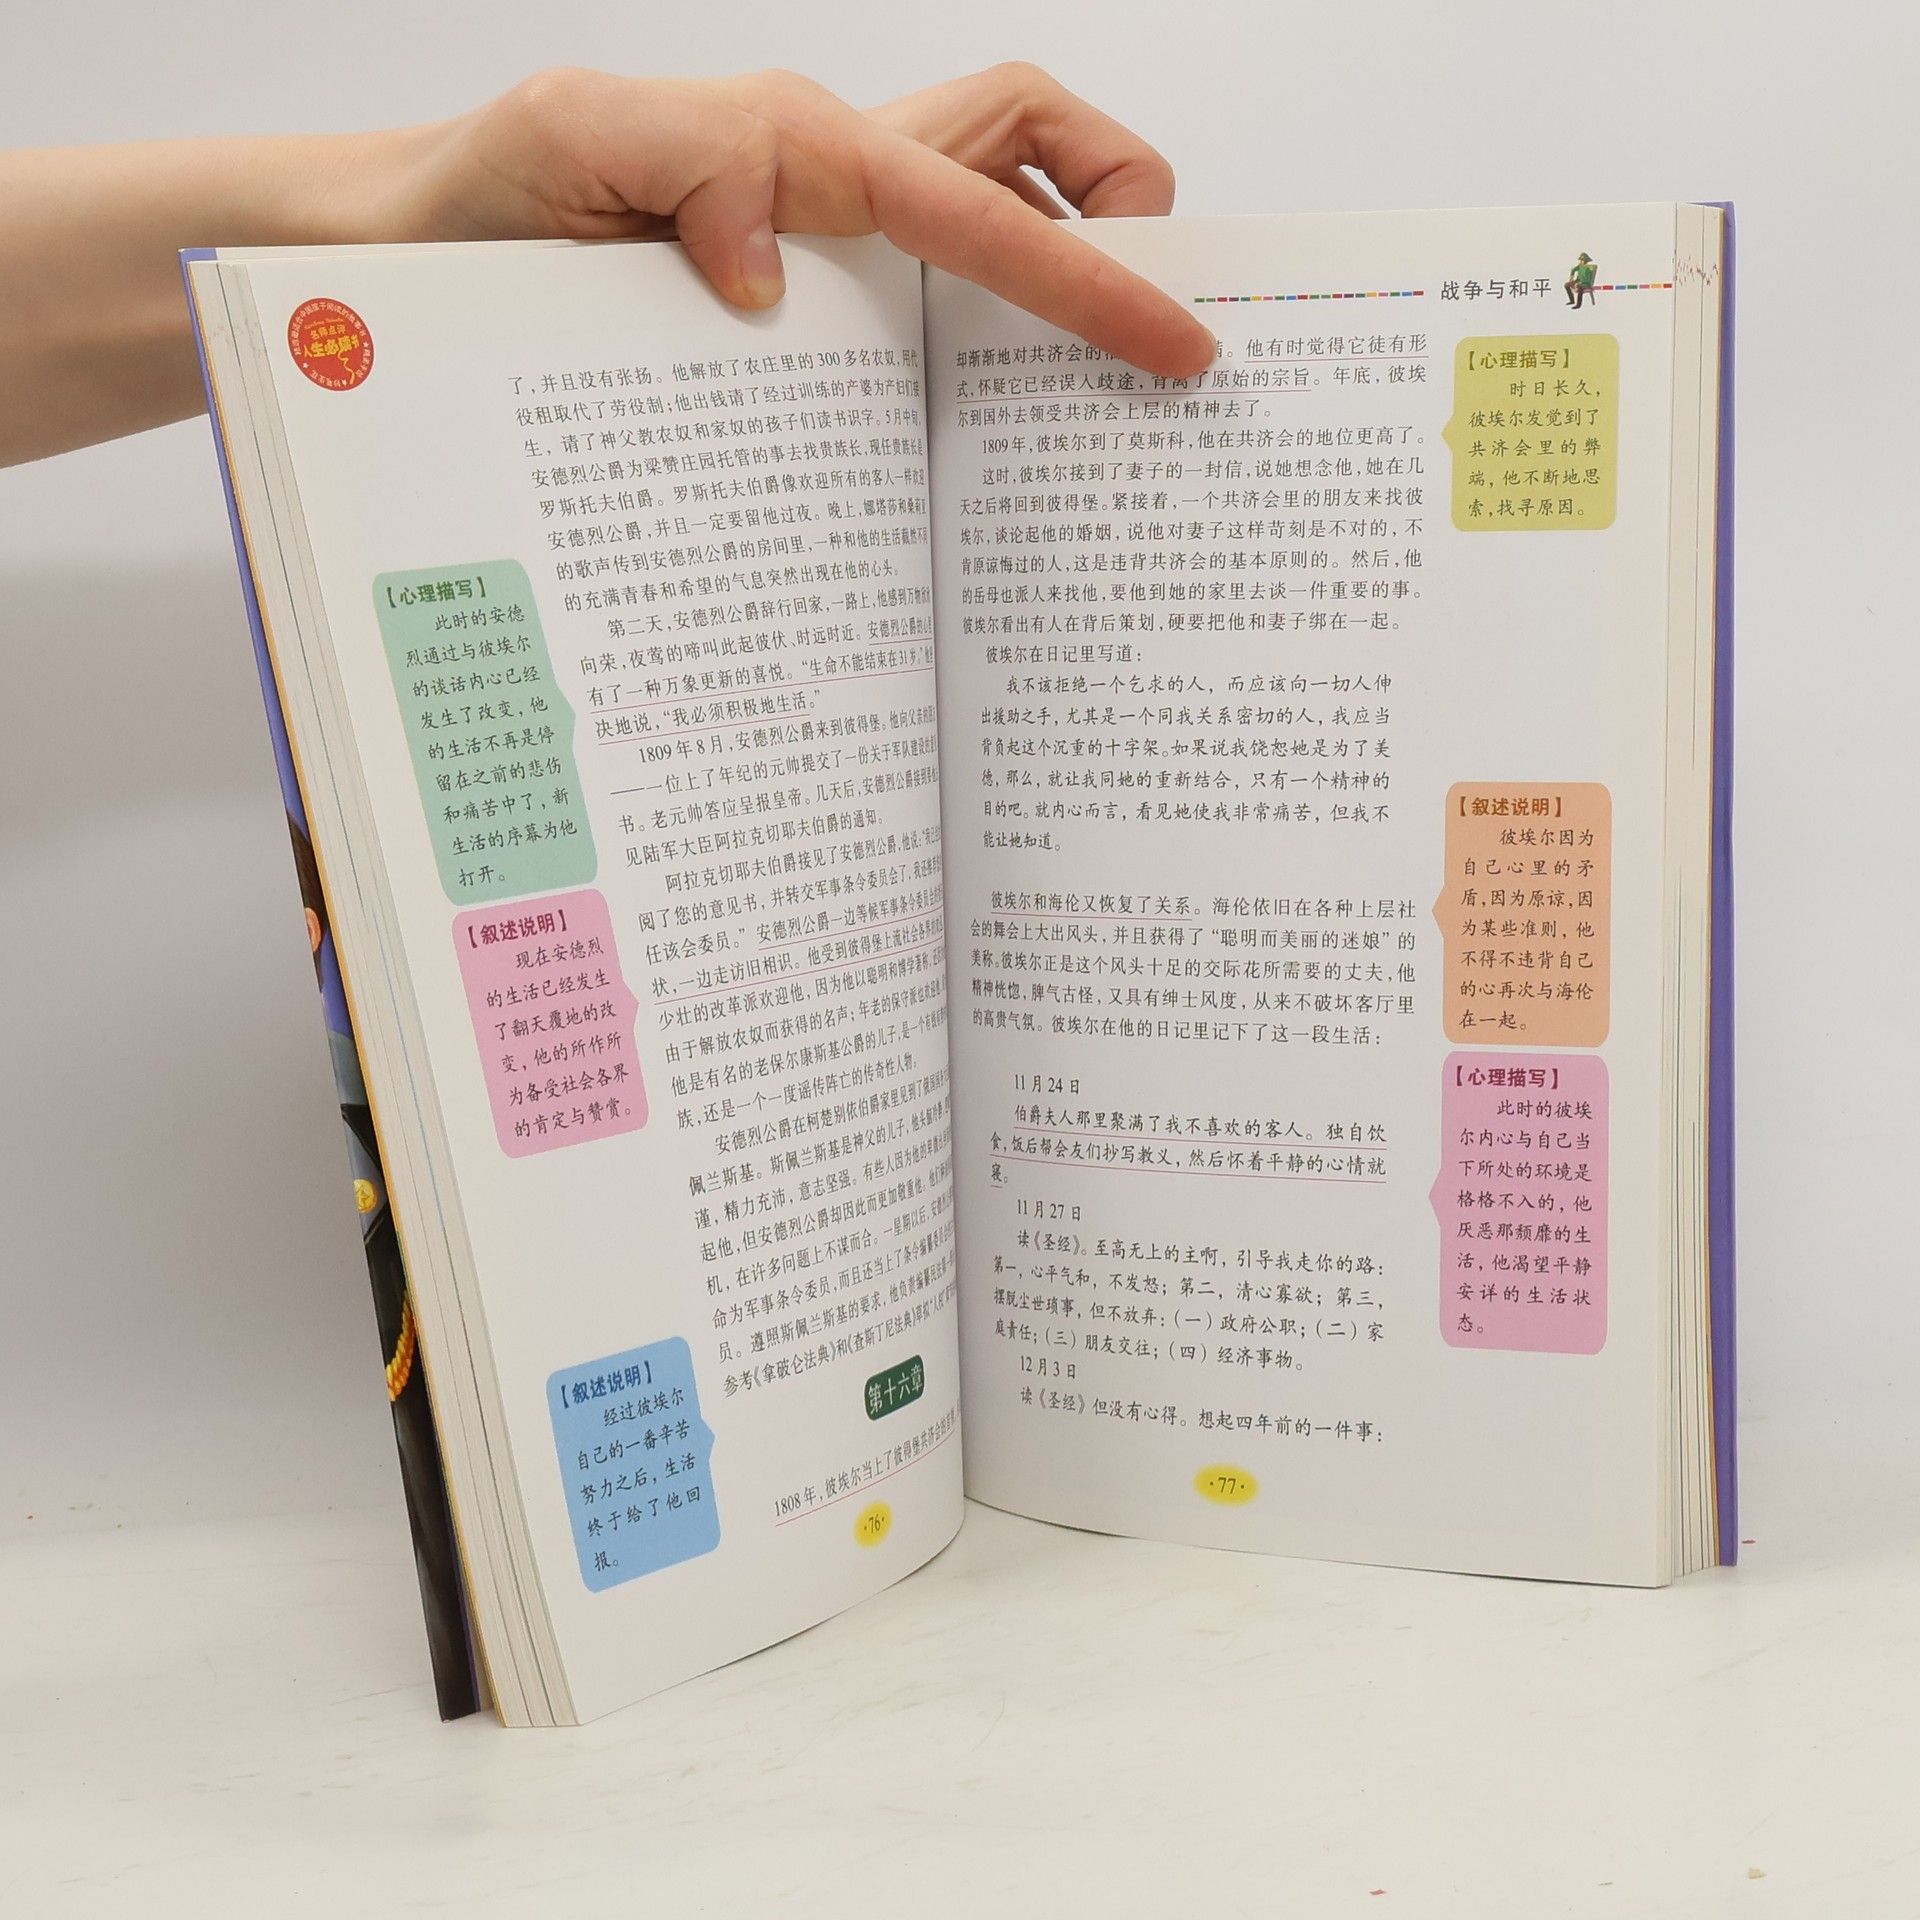 名师点评
人生必读书
了，并且没有张扬。他解放了农庄里的300多名农奴，用代
役租取代了劳役制；他出钱请了经过训练的产婆为产妇们接
生，请了神父教农奴和家奴的孩子们读书识字。5月中旬，
安德烈公爵为梁赞庄园托管的事去找贵族长，现任贵族长是
罗斯托夫伯爵。罗斯托夫伯爵像欢迎所有的客人一样欢迎
安德烈公爵，并且一定要留他过夜。晚上，娜塔莎和桑莉亚
的歌声传到安德烈公爵的房间里，一种和他的生活截然不同
的充满青春和希望的气息突然出现在他的心头。
第二天，安德烈公爵辞行回家，一路上，他感到万物欣欣
向荣，夜莺的啼叫此起彼伏、时远时近。安德烈公爵的心里
有了一种万象更新的喜悦。“生命不能结束在31岁。”他坚
决地说，“我必须积极地生活。”
1809年8月，安德烈公爵来到彼得堡。他向父亲的朋友
——一位上了年纪的元帅提交了一份关于军队建设的意见
书。老元帅答应呈报皇帝。几天后，安德烈公爵接到要他去
见陆军大臣阿拉克切耶夫伯爵的通知。
阿拉克切耶夫伯爵接见了安德烈公爵，他说：“我已经
阅了您的意见书，并转交军事条令委员会了，我还推荐您
任该会委员。”安德烈公爵一边等候军事条令委员会的
状，一边走访旧相识。他受到彼得堡上流社会各界的欢迎
少壮的改革派欢迎他，因为他以聪明和博学著称，还因为
由于解放农奴而获得的名声；年老的保守派也欢迎他，
他是有名的老保尔康斯基公爵的儿子，是一个有钱有势的
族，还是一个一度谣传阵亡的传奇性人物。
安德烈公爵在柯楚别依伯爵家里见到了俄国国务
佩兰斯基。斯佩兰斯基是神父的儿子，他头脑冷静、
谨，精力充沛，意志坚强。有些人因为他的卑微出身
起他，但安德烈公爵却因此而更加敬重他。他们俩
机，在许多问题上不谋而合。一星期以后，安德烈公爵
命为军事条令委员，而且还当上了条令编纂委员会
员。遵照斯佩兰斯基的要求，他负责编纂民法
参考《拿破仑法典》和《查斯丁尼法典》草拟“人权”
第十六章
1808年，彼埃尔当上了彼得堡共济会的首领，
·76·
【心理描写】
此时的安德
烈通过与彼埃尔
的谈话内心已经
发生了改变，他
的生活不再是停
留在之前的悲伤
和痛苦中了，新
生活的序幕为他
打开。
【叙述说明】
现在安德烈
的生活已经发生
了翻天覆地的改
变，他的所作所
为备受社会各界
的肯定与赞赏。
【叙述说明】
经过彼埃尔
自己的一番辛苦
努力之后，生活
终于给了他回
报。
战争与和平
却渐渐地对共济会的 。他有时觉得它徒有形
式，怀疑它已经误入歧途，背离了原始的宗旨。年底，彼埃
尔到国外去领受共济会上层的精神去了。
1809年，彼埃尔到了莫斯科，他在共济会的地位更高了。
这时，彼埃尔接到了妻子的一封信，说她想念他，她在几
天之后将回到彼得堡。紧接着，一个共济会里的朋友来找彼
埃尔，谈论起他的婚姻，说他对妻子这样苛刻是不对的，不
肯原谅悔过的人，这是违背共济会的基本原则的。然后，他
的岳母也派人来找他，要他到她的家里去谈一件重要的事。
彼埃尔看出有人在背后策划，硬要把他和妻子绑在一起。
彼埃尔在日记里写道：
我不该拒绝一个乞求的人，而应该向一切人伸
出援助之手，尤其是一个同我关系密切的人，我应当
背负起这个沉重的十字架。如果说我饶恕她是为了美
德，那么，就让我同她的重新结合，只有一个精神的
目的吧。就内心而言，看见她使我非常痛苦，但我不
能让她知道。
彼埃尔和海伦又恢复了关系。海伦依旧在各种上层社
会的舞会上大出风头，并且获得了“聪明而美丽的迷娘”的
美称。彼埃尔正是这个风头十足的交际花所需要的丈夫，他
精神恍惚，脾气古怪，又具有绅士风度，从来不破坏客厅里
的高贵气氛。彼埃尔在他的日记里记下了这一段生活：
11月24日
伯爵夫人那里聚满了我不喜欢的客人。独自饮
食，饭后帮会友们抄写教义，然后怀着平静的心情就
寝。
11月27日
读《圣经》。至高无上的主啊，引导我走你的路：
第一，心平气和，不发怒；第二，清心寡欲；第三，
摆脱尘世琐事，但不放弃：（一）政府公职；（二）家
庭责任；（三）朋友交往；（四）经济事物。
12月3日
读《圣经》但没有心得。想起四年前的一件事：
·77·
【心理描写】
时日长久，
彼埃尔发觉到了
共济会里的弊
端，他不断地思
索，找寻原因。
【叙述说明】
彼埃尔因为
自己心里的矛
盾，因为原谅，因
为某些准则，他
不得不违背自己
的心再次与海伦
在一起。
【心理描写】
此时的彼埃
尔内心与自己当
下所处的环境是
格格不入的，他
厌恶那颓靡的生
活，他渴望平静
安详的生活状
态。